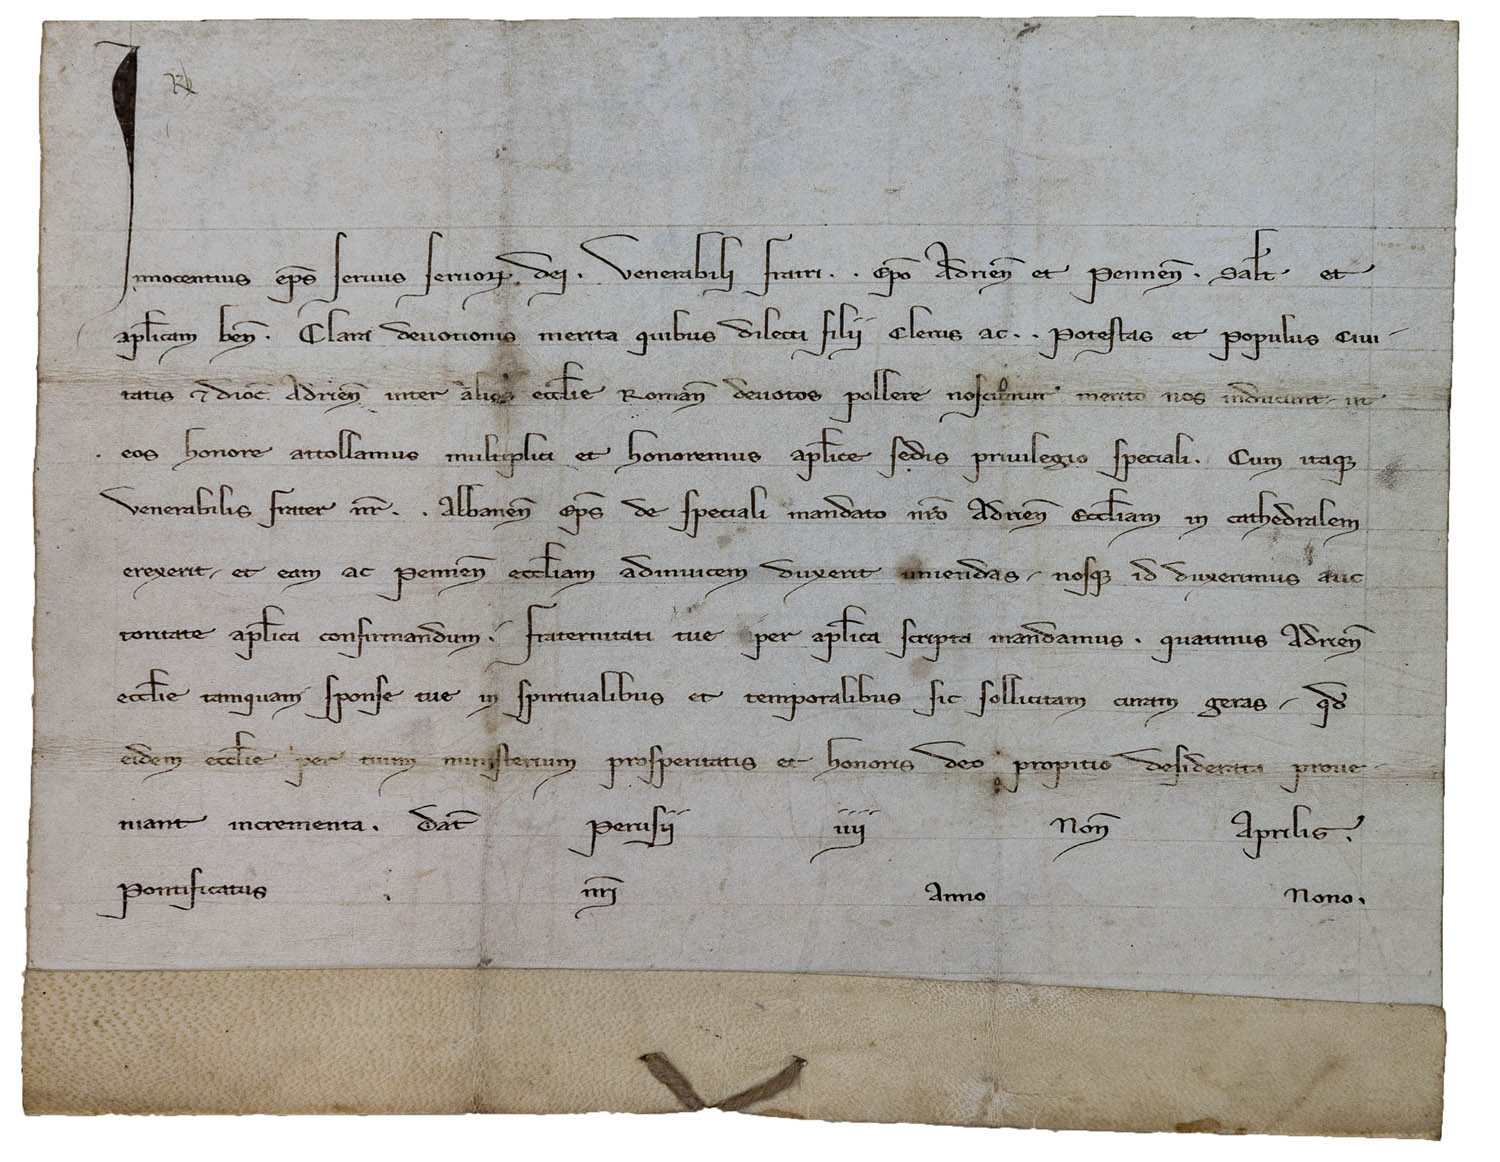 Innocentius ep̄s seruus seruoꝝ dei. Venerabili fratri . . Ep̄o Adrien̄ et Pennen̄. Salt̄ et
apl̄icam ben̄. Clara deuotionis merita quibus dilecti filii Clerus ac . . Potestas et Populus Ciui-
tatis ⁊ dioc̄ Adrien̄ inter alios eccl̄ie Roman̄ deuotos pollere noscuntur merito nos inducunt ut
eos honore attollamus multiplici et honoremus apl̄ice sedis priuilegio speciali. Cum itaqꝫ
Venerabilis frater nr̄ . . Albanen̄ Ep̄s de speciali mandato nr̄o Adrien̄ Eccl̄iam in cathedralem
erexerit, et eam ac Pennen̄ eccl̄iam adinuicem duxerit uniendas, nosqꝫ id duxerimus auc
toritate apl̄ica confirmandum. fraternitati tue per apl̄ica scripta mandamus. quatinus Adrien̄
eccl̄ie tamquam sponse tue in spiritualibus et temporalibus sic sollicitam curam geras, qd̄
eidem eccl̄ie per tuum ministerium prosperitatis et honoris deo propitio desiderata proue-
niant incrementa. Dat̄ Perusii iiii Non̄ Aprilis.
Pontificatus . nr̄i Anno Nono.